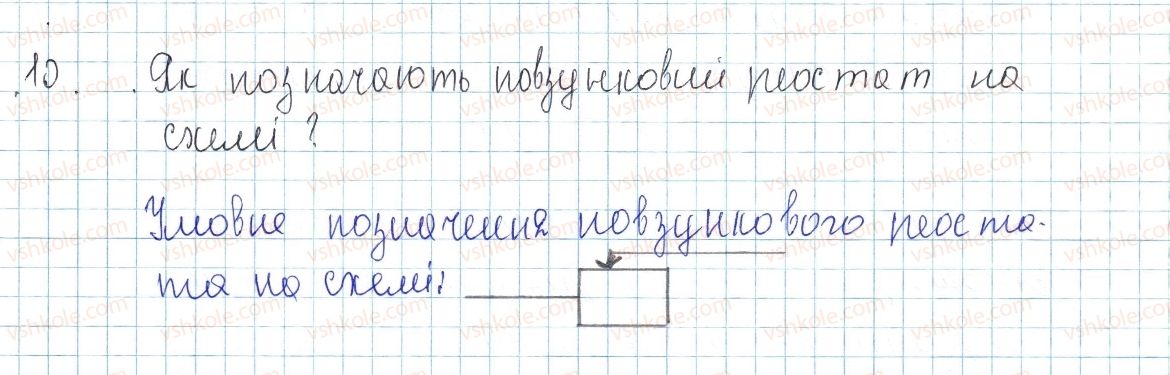 10. Як позначають повзунковий реостат на
схемі?
Умовне позначення повзункового реоста-
та на схемі: